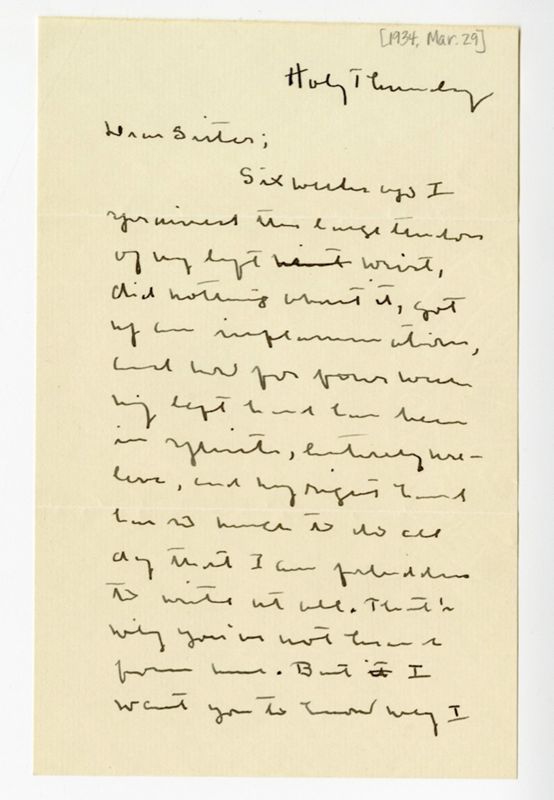 [1934, Mar. 29]
Holy Thursday
Dear Sister;
Six weeks ago I
sprained the large tendon
of my left waist wrist,
did nothing about it, got
up an inflammation,
and now for four weeks
my left hand has been
in splints, entirely use-
less, and my right hand
has so much to do all
day that I am forbidden
to write at all. That's
why you've not heard
from me. But it I
want you to know why I